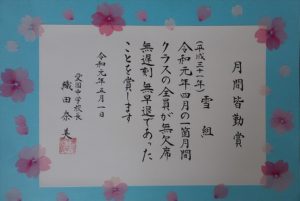 月間皆勤賞
雪組
(平成三十一年)
令和元年四月の一箇月間
クラスの全員が無欠席
無遅刻 無早退であった
ことを賞します
令和元年五月一日
愛国中学校長
織田奈美